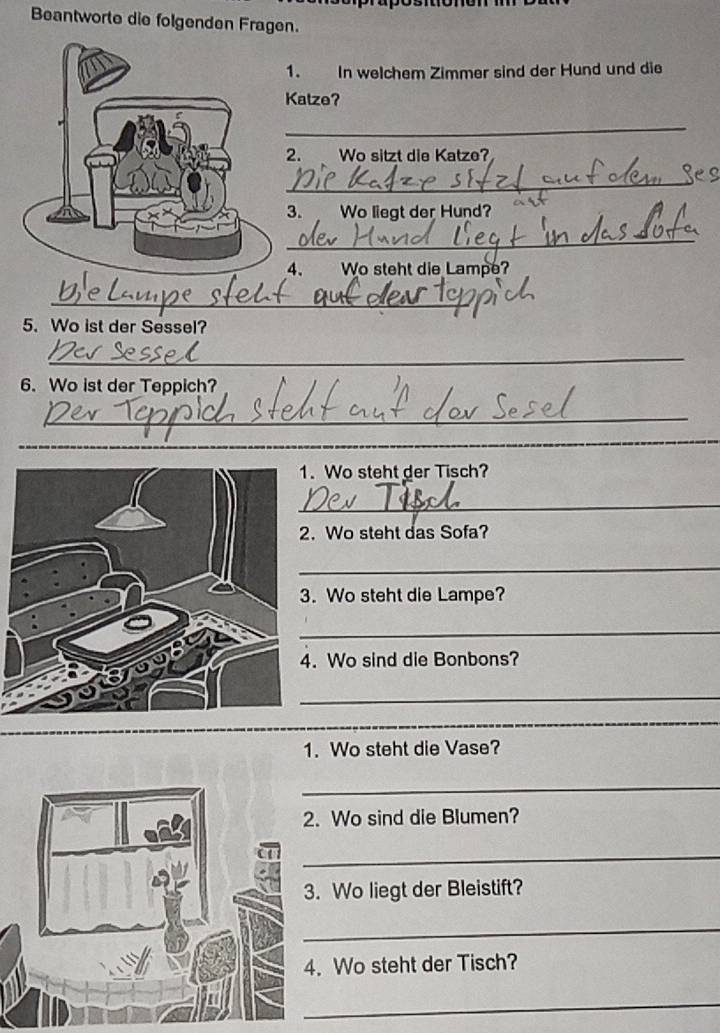 Beantworte die folgenden Fragen.
1. In welchem Zimmer sind der Hund und die
Katze?
2. Wo sitzt die Katze?
Die Katze sitzt auf dem Ses
3. Wo liegt der Hund?
auf
der Hund liegt in das Sofa
4. Wo steht die Lampe?
Die Lampe steht auf den teppich
5. Wo ist der Sessel?
Der Sessel
6. Wo ist der Teppich?
Der Teppich steht auf der Sesel
1. Wo steht der Tisch?
Der Tisch
2. Wo steht das Sofa?
3. Wo steht die Lampe?
4. Wo sind die Bonbons?
1. Wo steht die Vase?
2. Wo sind die Blumen?
3. Wo liegt der Bleistift?
4. Wo steht der Tisch?